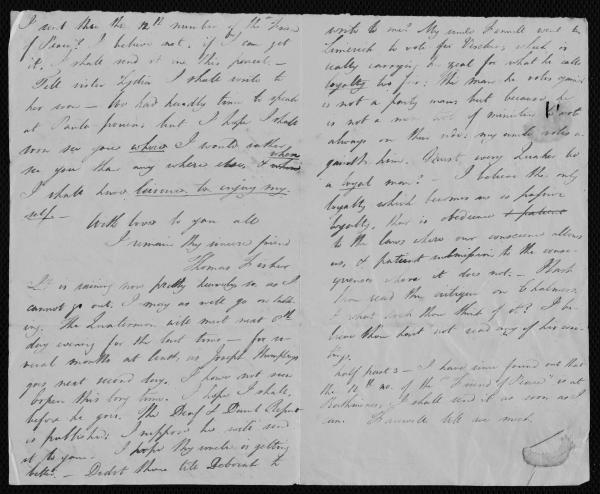 I sent thee the 12th number of the Friend
of Peace? I believe not, if I can get
it, I shall send it in this parcel. —
Tell sister Lydia I shall write to
her soon — We had hardly time to speak
at but I hope I shall
soon see you where I would rather
see you than any where else, & when
I shall have leisure to enjoy my-
self —
With love to you all
I remain thy sincere friend
Thomas Fisher
It is raining now pretty heavily so as I
cannot go out, I may as well go on talk
ing. The will meet next 6th
day evening for the last time — for se
veral months at least, as Joseph Humphreys
goes next second day. I have not seen
this long time. I hope I shall,
before he goes. The Deaf & Dumb Report
is published: I suppose he will send
it to you. I hope thy uncle is getting
better. — Didst thou tell Deborah to
write to me? My uncle went to
Limerick to vote for which is
really carrying his zeal for what he calls
loyalty too far: The man he votes against
is not a party man, but because he
is not a man of ministers &
always on their side, my uncle votes a-
gainst him. Must every Quaker be
a loyal man? — I believe the only
loyalty which becomes us is passive
loyalty, that is obedience & patient
to the laws where our conscience allows
us, & patient submission to the conse-
quences where it does not. — Hast
thou read the critique on Chalmers,
& what dost thou think of it? I be-
lieve thou hast not read any of his wri-
tings.
half past 3 — I have since found out that
the 12th no. of the "Friend of Peace" is at
I shall send it as soon as I
can. Farewell till we meet.